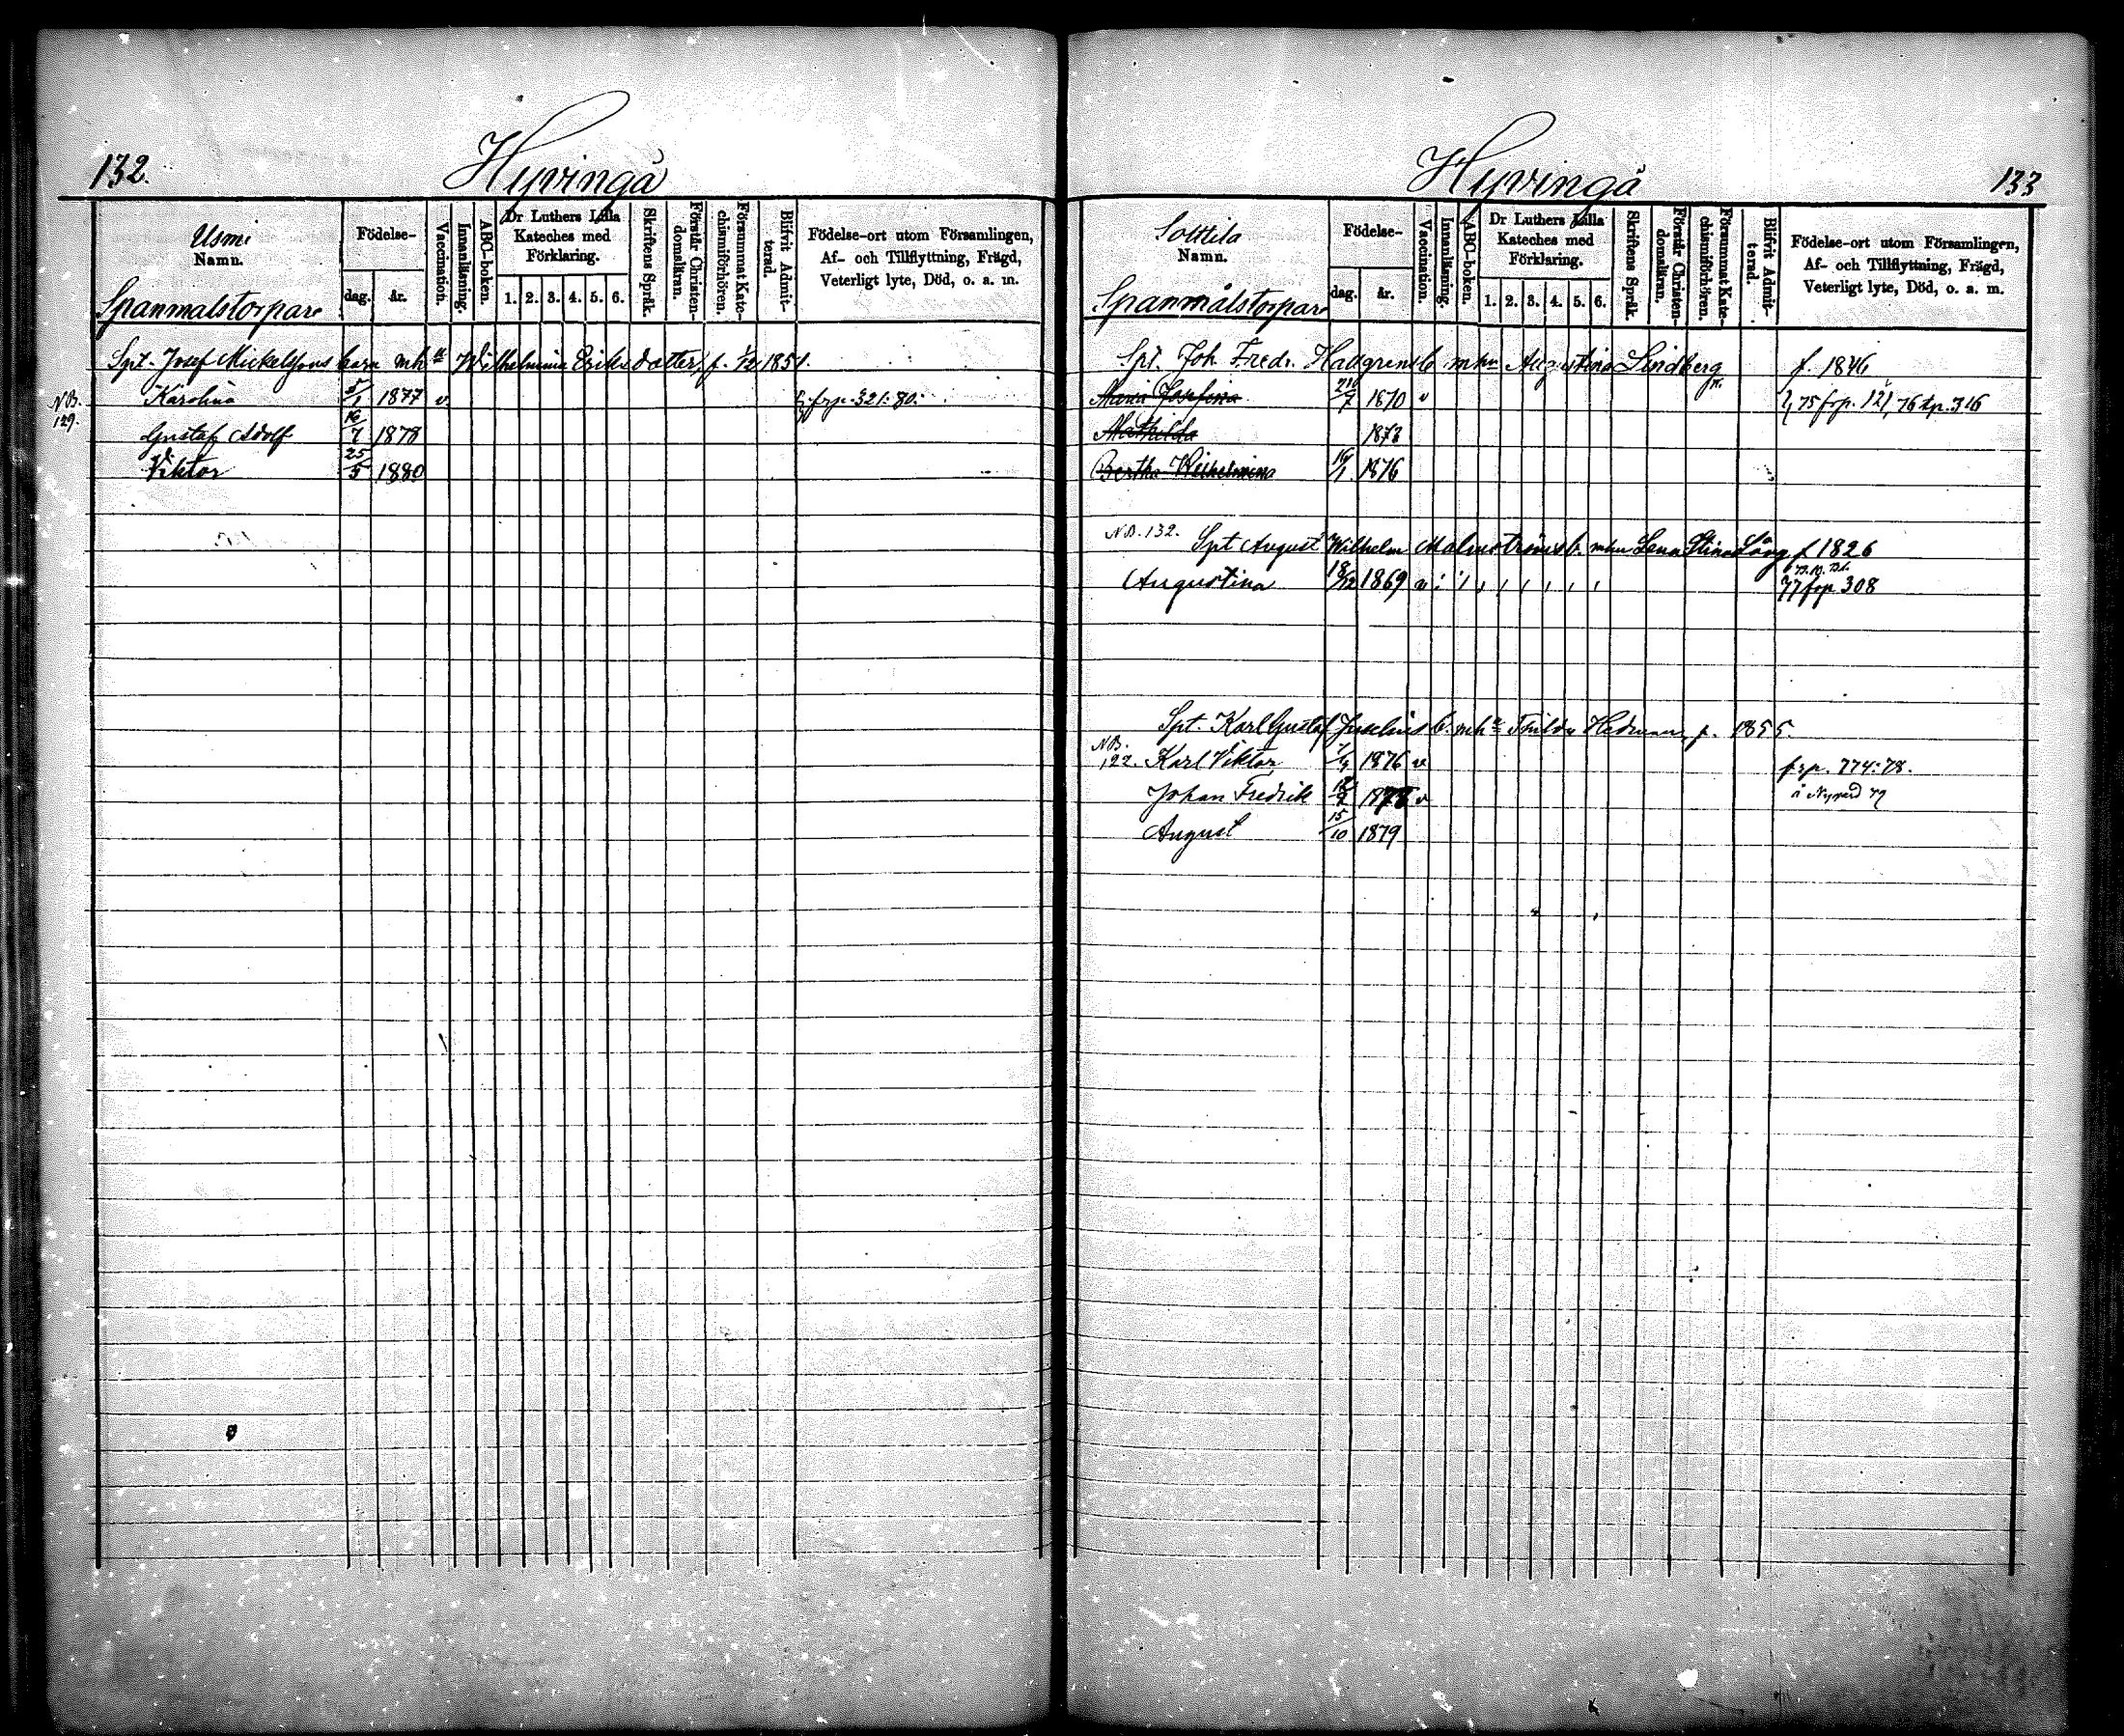 132.
Hyvingä
Usmi
Namn.
Spanmålstorpare
Födelse-
dag.
år.
Vaccination.
Innanläsning.
ABC-boken.
Dr Luthers Lilla
Kateches med
Förklaring.
1. 2. 3. 4. 5. 6.
Skriftens Språk.
Förstår Christen-
domsläran.
Försummat Kate-
chismiförhören.
Blifvit Admit-
terad.
Födelse-ort utom Församlingen,
Af- och Tillflyttning, Frägd,
Veterligt lyte, Död, o. a. m.
Spt. Josef Mickelssons barn mhu Wilhelmina Eriksdotter, f. 1/12 1851.
N.B. 129. Karolina 5/1 1877 v frp. 321: 80.
Gustaf Adolf 16/7 1878
Viktor 25/5 1880
Hyvingä
133
Sottila
Namn.
Spanmålstorpare
Födelse-
dag.
år.
Vaccination.
Innanläsning.
ABC-boken.
Dr Luthers Lilla
Kateches med
Förklaring.
1. 2. 3. 4. 5. 6.
Skriftens Språk.
Förstår Christen-
domsläran.
Försummat Kate-
chismiförhören.
Blifvit Admit-
terad.
Födelse-ort utom Församlingen,
Af- och Tillflyttning, Frägd,
Veterligt lyte, Död, o. a. m.
Spt. Joh. Fredr. Hadgrens b. m hu Augustina Lindberg f. 1846
Maria Josefina 1870 v 75 frp. 121/76 tp. 316
Mathilda 1873
Bertha Wilhelmina 16/1 1876
N.B. 132. Spt August Wilhelm Malmströms b. mhu Lena Stina Lång f 1826
Augustina 18/12 1869 v 77 frp 308
Spt. Karl Gustaf b. mhu Thilda Hedman, f. 1855.
N.B. 122. Karl Viktor 1876 v frp. 774: 78.
Johan Fredrik 1878 v
August 15/10 1879